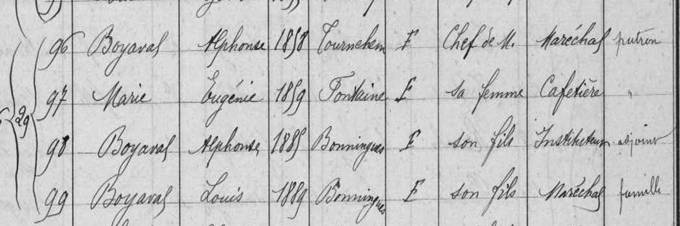 29
96 Boyaval Alphonse 1858 Tournehem F Chef de M. Maréchal patron
97 Marie Eugénie 1859 Fontaine F sa femme Cafetière "
98 Boyaval Alphonse 1885 Bonningues F son fils Instituteur adjoint
99 Boyaval Louis 1889 Bonningues F son fils Maréchal famille